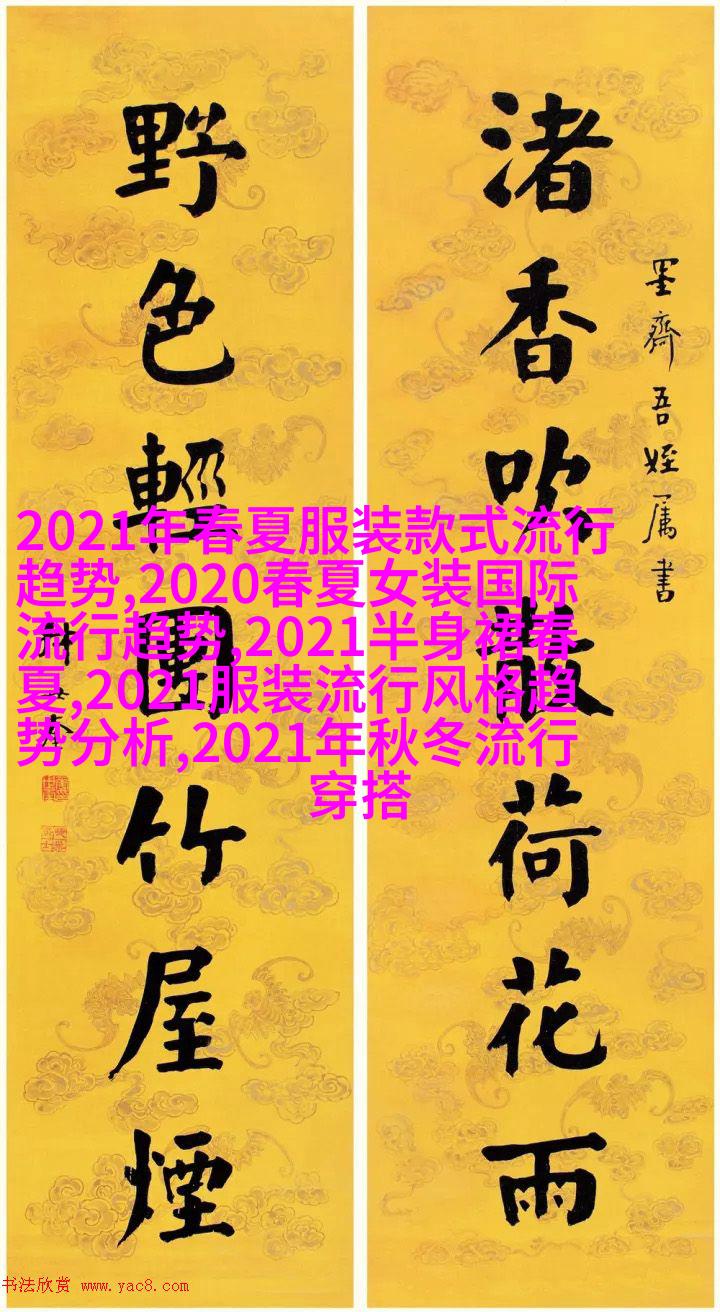 渚香吹散荷花雨
墨齋吾姪属書
野色輕圍竹屋煙
2021年春夏服装款式流行
趋势,2020春夏女装国际
流行趋势,2021半身裙春
夏,2021服装流行风格趋
势分析,2021年秋冬流行
穿搭
书法欣赏 www.yac8.com